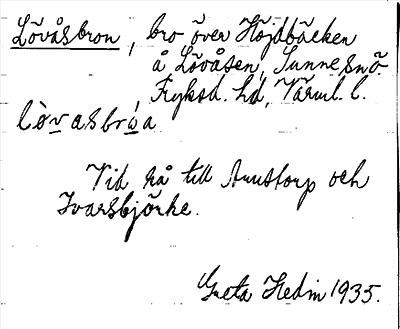 Lövåsbron, bro över Höjdbäcken
å Lövåsen, Sunne snö.
Fryksd. hd, Värml. l.
lòvasbróa
Vid rå till Arnstorp och
Ivarsbjörke.
Greta Hedin 1935.